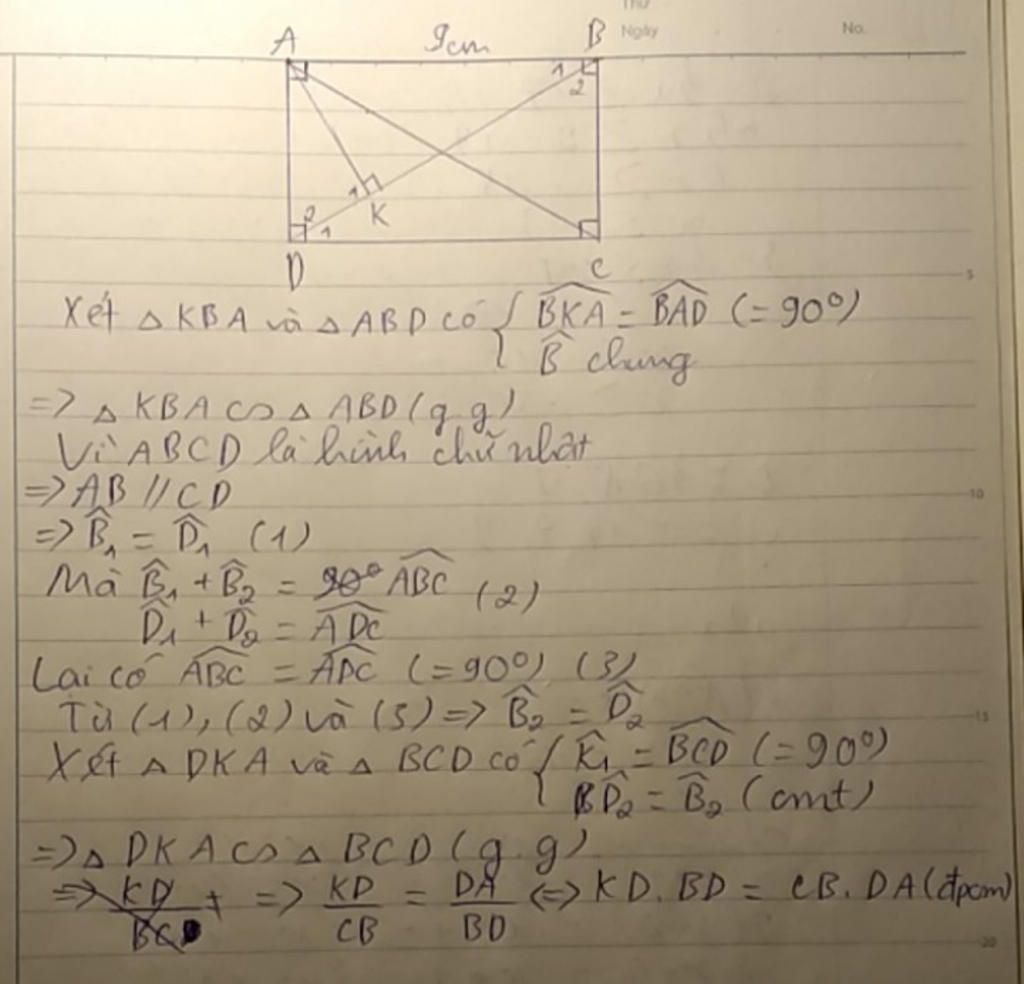 Thứ
Ngày No.
A 9cm B
1 2
1 K
2 1
D C
5
Xét △ KBA và △ ABD có { BKA^ = BAD^ (= 90°)
B^ chung
=> △ KBA ∽ △ ABD (g.g)
Vì ABCD là hình chữ nhật
=> AB // CD
10
=> B̂₁ = D̂₁ (1)
Mà B̂₁ + B̂₂ = 90° ABC^ (2)
D̂₁ + D̂₂ = ADC^
Lại có ABC^ = ADC^ (= 90°) (3)
Từ (1), (2) và (3) => B̂₂ = D̂₂
15
Xét △ DKA và △ BCD có { K̂₁ = BCD^ (= 90°)
D̂₂ = B̂₂ (cmt)
=> △ DKA ∽ △ BCD (g.g)
=> KD/BCD => KD/CB = DA/BD <=> KD. BD = CB. DA (đpcm)
20